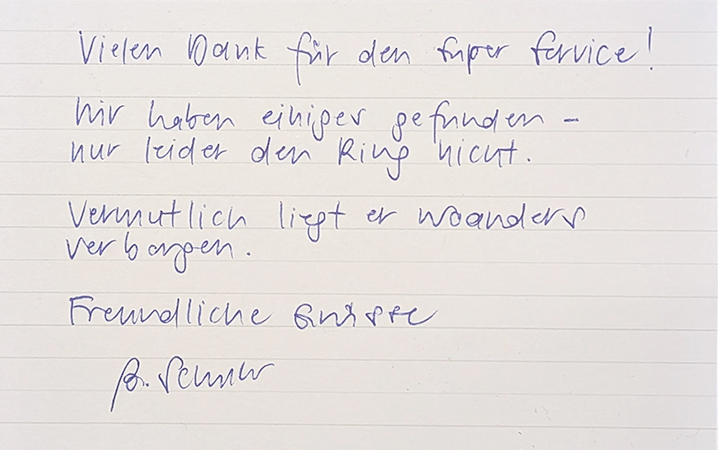 Vielen Dank für den super Service!
Wir haben einiges gefunden –
nur leider den Ring nicht.
Vermutlich liegt er woanders
verborgen.
Freundliche Grüsse